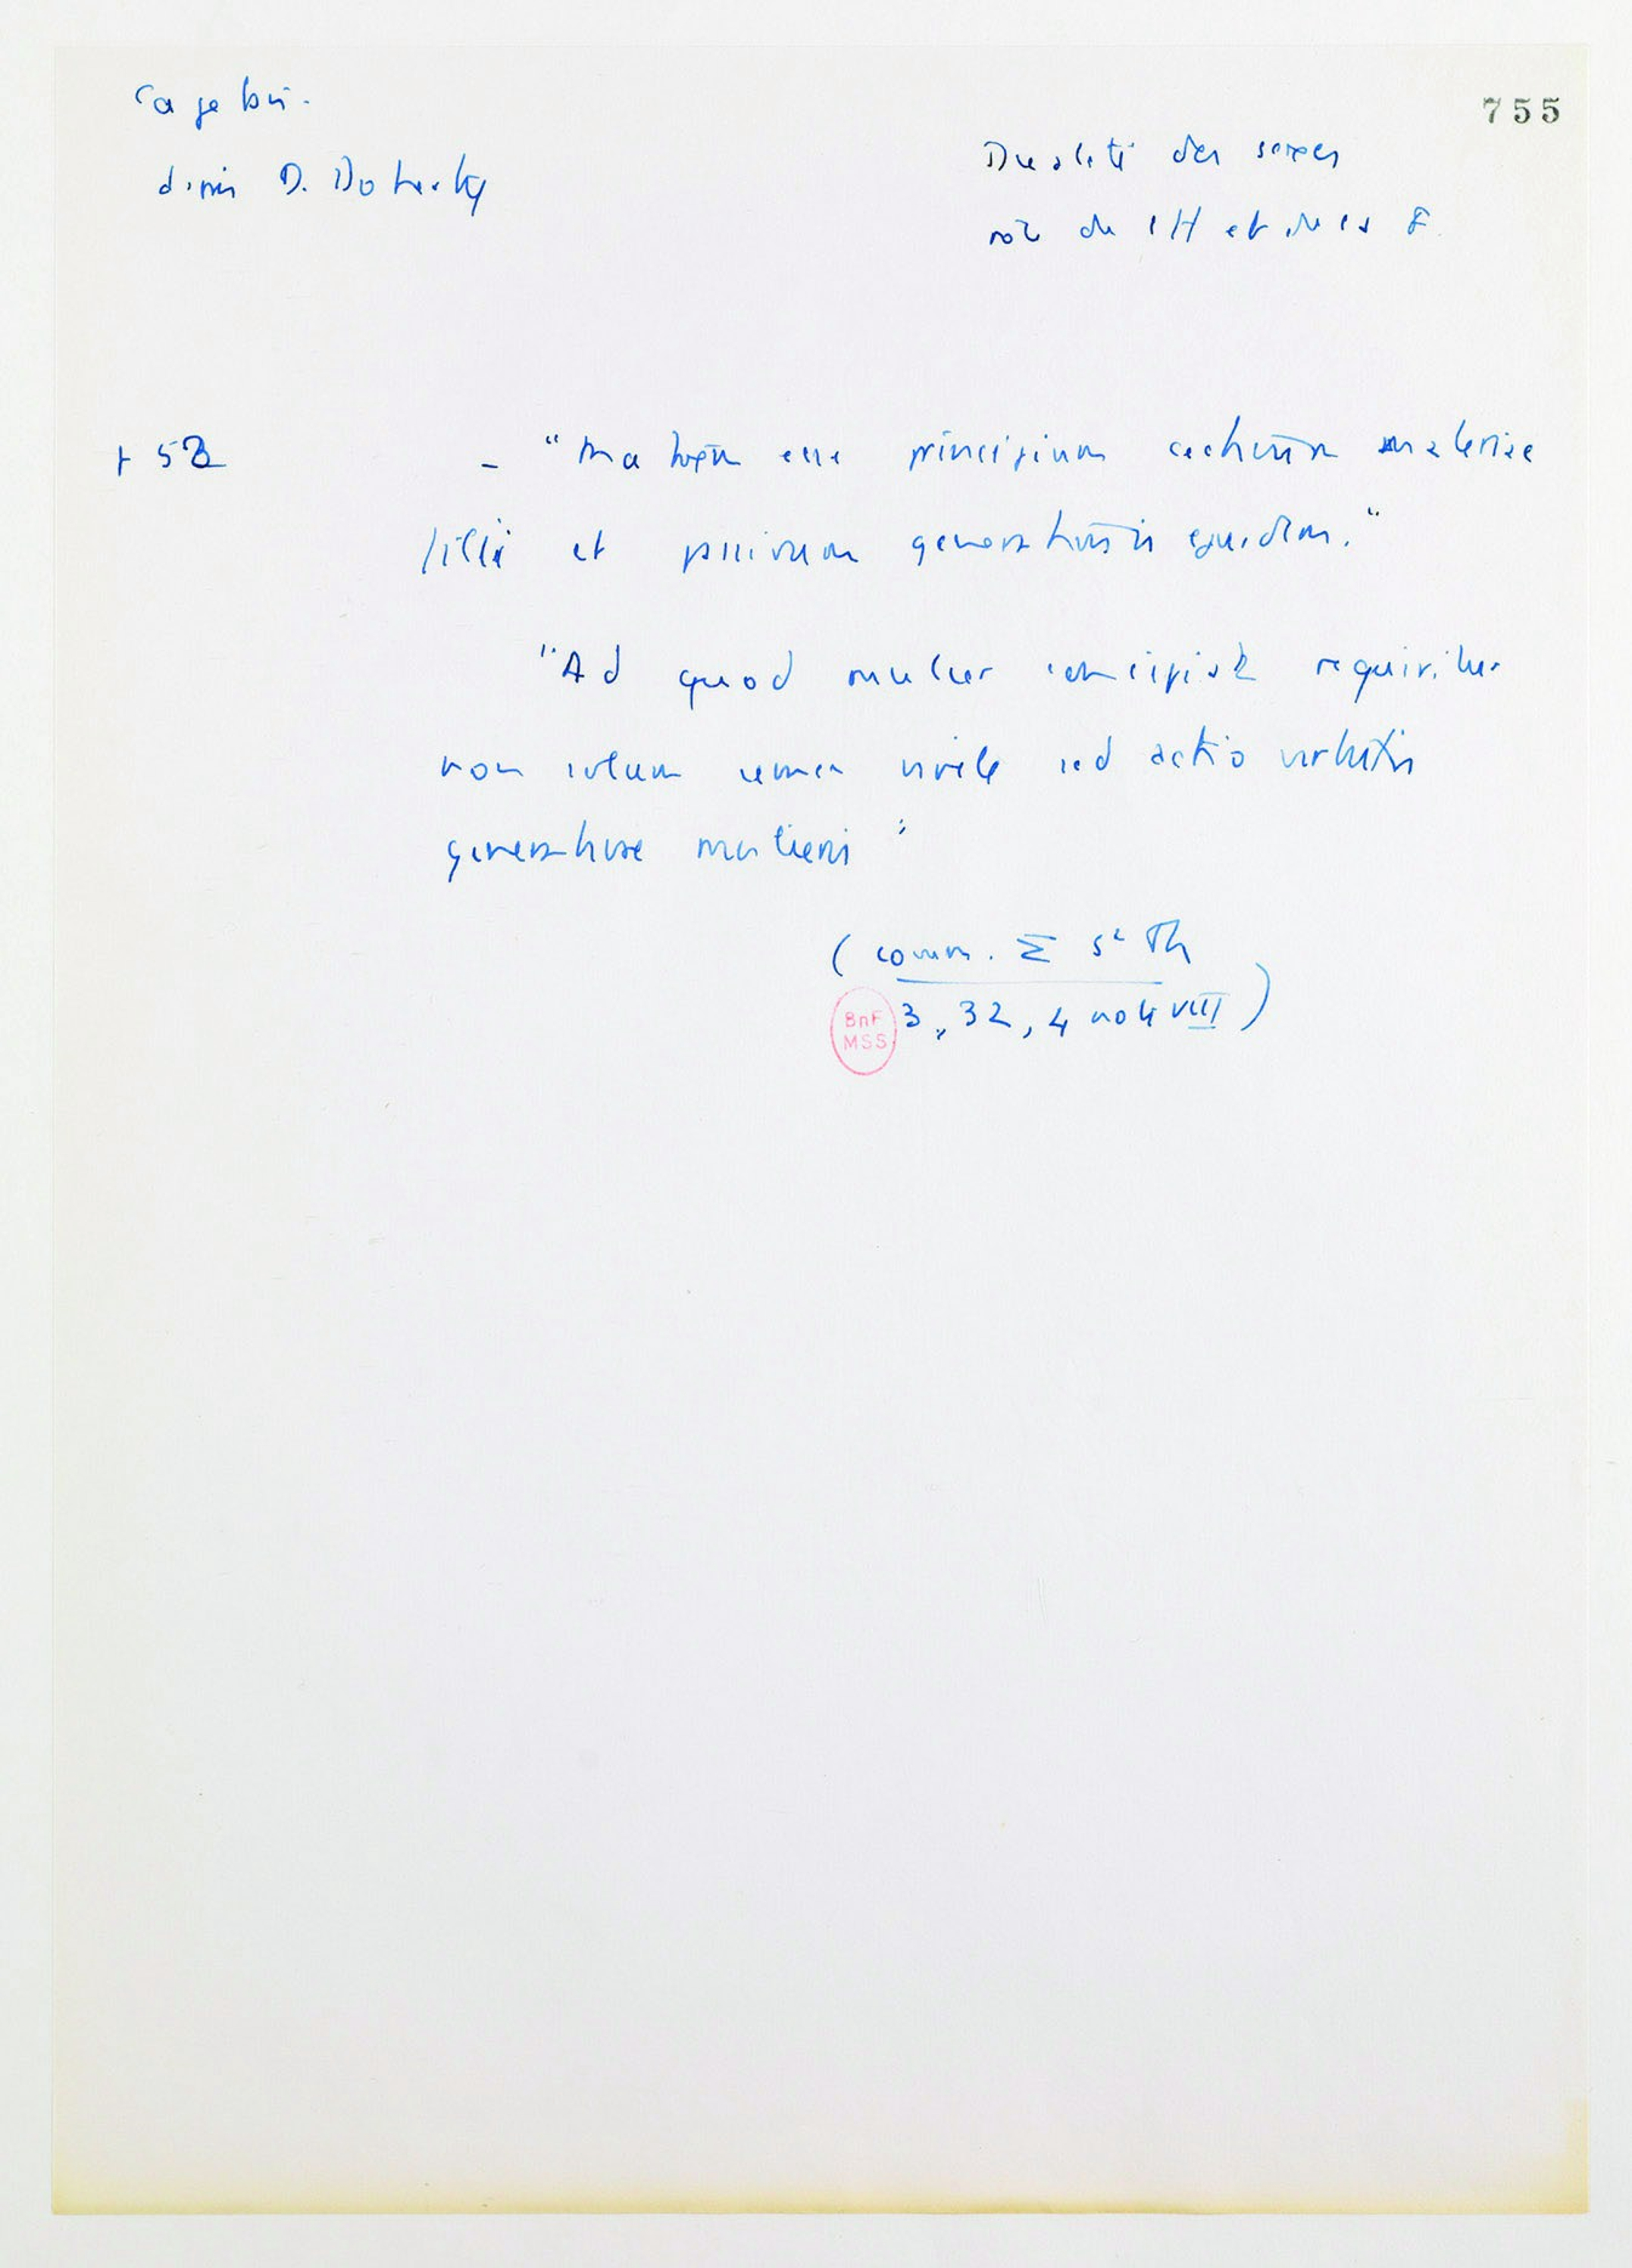 Cajetan.
dans D. Doherty
755
Dualité des sexes
rôle de l'H et de la F.
p 52
- "Matrem esse principium activum materiae
filii et passivum generationis ejusdem."
"Ad quod mulier concipiat requiritur
non solum semen virile sed actio virtutis
generativae mulieris"
(comm. Σ St Th
3, 32, 4 note VIII)
BnF
MSS